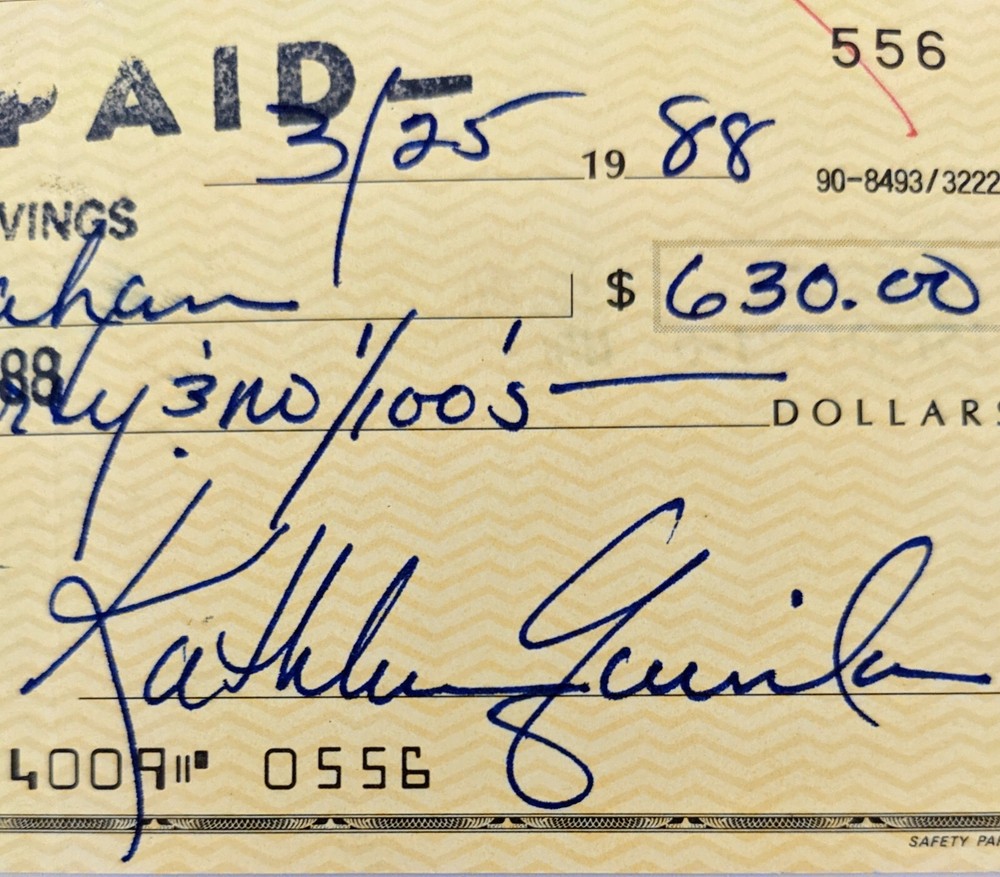 556
PAID
3/25 19 88
90-8493/3222
VINGS
ahan $ 630.00
88
rty & no/100's DOLLARS
Kathleen Quinlan
4009⑈ 0556
SAFETY PA